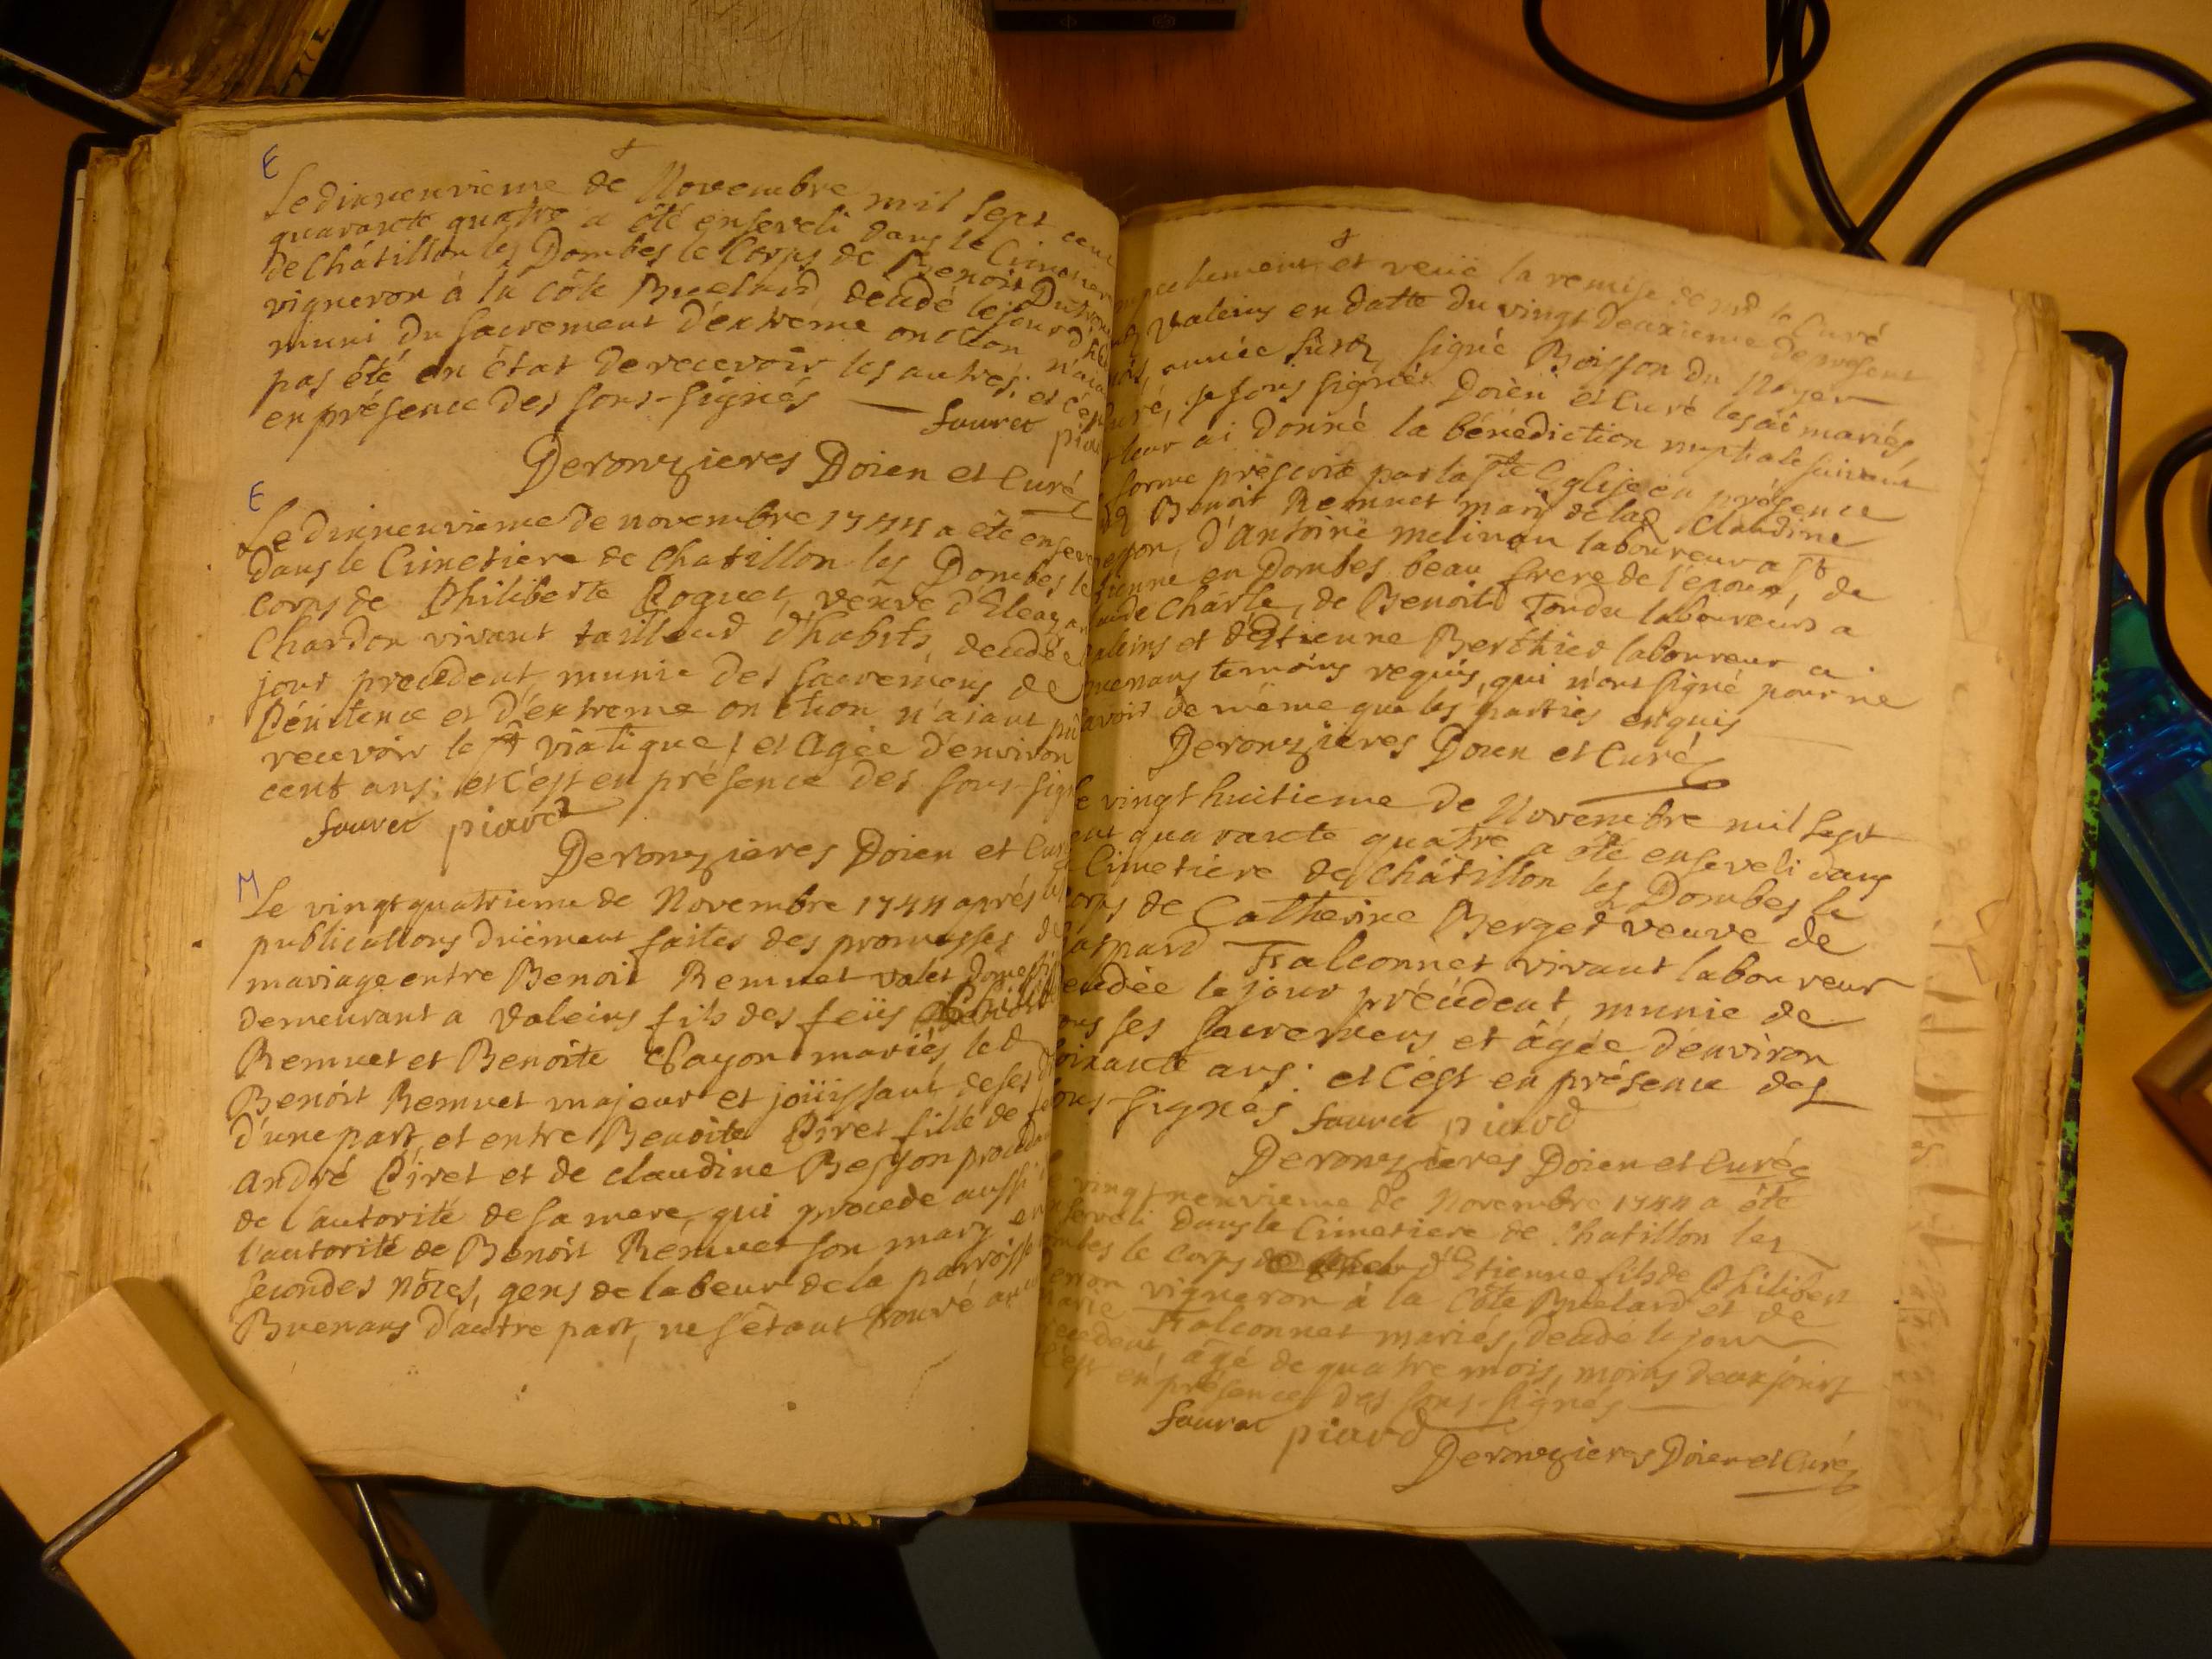 E
Le dixneuvieme de Novembre mil sept cent
quarante quatre a été enseveli dans le Cimetier
de Châtillon les Dombes le Corps de Benoit
vigneron à la Côte Buelard, decedé le jour d'hier
muni du sacrement d'extreme onction n'aiant
pas été en état de recevoir les autres; et c'est
en présence des sous-signés
fauret piard
Deronzieres Doien et Curé
E
Le dixneuvieme de novembre 1744 a été enseve
dans le Cimetiere de Chatillon les Dombes le
Corps de Philiberte Poquet, veuve d'Eleazar
Chardon vivant tailleud d'habits, decedée
jour precedent, munie des sacremens de
Pénitence et d'extreme onction n'aiant pu
recevoir le St viatique, et agée d'environ
cent ans; et c'est en présence des sous-sign
fauret piard
Deronzieres Doien et Curé
M
Le vingt quatrieme de Novembre 1744 aprés les
publications duement faites des promesses de
mariage entre Benoit Remuet valet domesti
demeurant a Valeins fils des feüs
Remuet et Benoite Payon mariés led
Benoit Remuet majeur et joüissant de ses
d'une part, et entre Benoite Piret fille de
André Piret et de claudine Besson procedant
de l'autorité de sa mere, qui procede aussi
l'autorité de Benoit Remuet son mary en
secondes nôces, gens de labeur de la parroisse
Buenans d'autre part, ne s'étant trouvé aucun
empechement et veüe la remise de mr le Curé
Valeins en datte du vingt deuxieme de present
mois, année susd, signé Boisson du Noyer
curé, je sous signés Doien et Curé les ai mariés,
leur ai donné la bénédiction nuptiale suivant
forme préscrite par la Ste Eglise en présence
dud Benoit Remuet mari de lad Claudine
Besson, d'Antoine melinan laboureur a St
Etienne en Dombes beau frere de l'epoux, de
Claude Charle, de Benoit Tondu laboureurs a
Valeins et d'Etienne Berthier laboureur a
Buenans temoins requis, qui n'ont signé pour ne
savoir de même que les parties enquis
Deronzieres Doien et Curé
Le vingt huitieme de Novembre mil sept
cent quarante quatre a été enseveli dans
Cimetiere de Châtillon les Dombes le
corps de Catherine Berged veuve de
Gaspard Falconnet vivant laboureur
decedée le jour précedent, munie de
tous ses sacremens et âgée d'environ
soixante ans; et c'est en présence des
sous-signés fauret piard
Deronzieres Doien et Curé
vingt neuvieme de Novembre 1744 a été
enseveli dans le Cimetiere de Chatillon les
Dombes le Corps d'Etienne fils de Philibert
vigneron à la Côte Buelard et de
Marie Falconnet mariés, decedé le jour
precedent, âgé de quatre mois, moins deux jours
c'est en présence des sous-signés
fauret piard
Deronzieres Doien et Curé